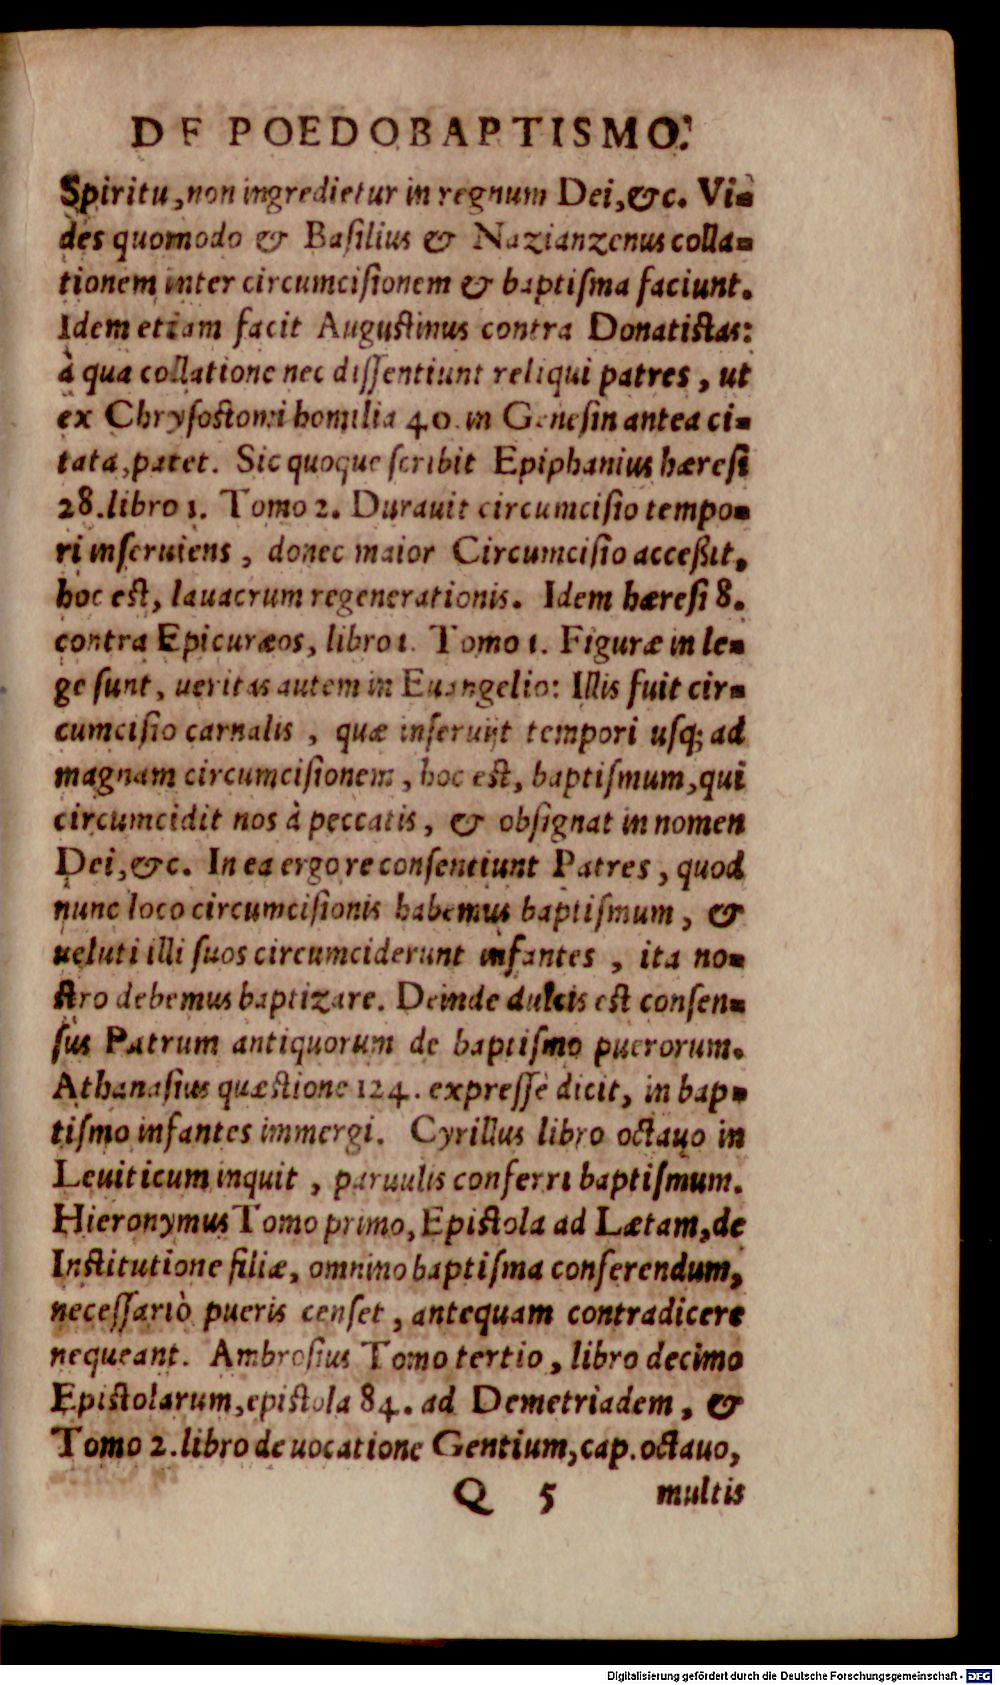 DE POEDOBAPTISMO.
Spiritu, non ingredietur in regnum Dei, &c. Vi-
des quomodo & Basilius & Nazianzenus colla-
tionem inter circumcisionem & baptisma faciunt.
Idem etiam facit Augustinus contra Donatistas:
à qua collatione nec dissentiunt reliqui patres, ut
ex Chrysostomi homilia 40. in Genesin antea ci-
tata, patet. Sic quoque scribit Epiphanius hæresi
28. libro 1. Tomo 2. Durauit circumcisio tempo-
ri inseruiens, donec maior Circumcisio acceßit,
hoc est, lauacrum regenerationis. Idem hæresi 8.
contra Epicuræos, libro 1. Tomo 1. Figuræ in le-
ge sunt, ueritas autem in Euangelio: Illis fuit cir-
cumcisio carnalis, quæ inseruijt tempori usq; ad
magnam circumcisionem, hoc est, baptismum, qui
circumcidit nos à peccatis, & obsignat in nomen
Dei, &c. In ea ergo re consentiunt Patres, quod
nunc loco circumcisionis habemus baptismum, &
ueluti illi suos circumciderunt infantes, ita no-
stro debemus baptizare. Deinde dulcis est consen-
sus Patrum antiquorum de baptismo puerorum.
Athanasius quæstione 124. expressè dicit, in bap-
tismo infantes immergi. Cyrillus libro octauo in
Leuiticum inquit, paruulis conferri baptismum.
Hieronymus Tomo primo, Epistola ad Lætam, de
Institutione filiæ, omnino baptisma conferendum,
necessariò pueris censet, antequam contradicere
nequeant. Ambrosius Tomo tertio, libro decimo
Epistolarum, epistola 84. ad Demetriadem, &
Tomo 2. libro de uocatione Gentium, cap. octauo,
Q 5 multis
Digitalisierung gefördert durch die Deutsche Forschungsgemeinschaft - DFG